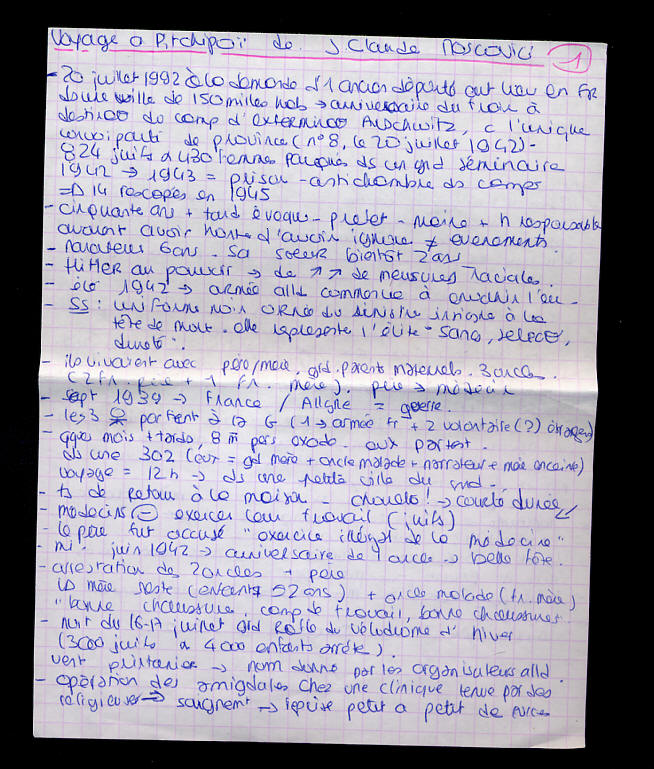 Voyage à Pitchipoï de J. Claude Moscovici 1
- 20 juillet 1992 à la demande d'1 ancien déporté eut lieu en FR
d'une ville de 150 milles hab → anniversaire du train à
destination du camp d'extermina° Auschwitz, c l'unique
convoi parti de province (n°8, le 20 juillet 1942) -
824 juifs a 430 femmes parqués ds un grd séminaire
1942 → 1943 = prison - antichambre des camps
=> 14 rescapés en 1945
- cinquante ans + tard évoque - préfet - maire + h responsable
avouant avoir honte d'avoir ignoré ≠ évènements.
- narrateur 6ans. sa soeur bientôt 2ans
- Hitler au pouvoir → de ↗↗ de mesures raciales.
- été 1942 → armée alld commence à envahir l'eu -
- SS : uniforme noir orné du sinistre insigne à la
tête de mort. elle représente l'élite - sang, select°,
dureté
- ils vivaient avec père/mère, grd.parents maternels. 3 oncles.
(2 fr. père + 1 fr. mère). père → médecin
- sept 1939 → France / Allgne = guerre.
- les 3 partent à la G (1 → armée fr + 2 volontaire (?) étrangers)
- qques mois + tards, 8 m pers exode. eux partent.
ds une 302 (eux = gd mère + oncle malade + narrateur + mère enceinte)
voyage = 12h → ds une petite ville du sud -
- ts de retour à la maison - chouette! → courte durée
- médecins ⊖ exercer leur travail (juifs)
- le père fut accusé "exercice illégal de la médecine"
- mi - juin 1942 → anniversaire de 1 oncle → belle fête.
- arrestation des 2 oncles + père
la mère reste (enfants 52 ans) + oncle malade (fr. mère)
"bonne chaussure, camp de travail, bonne chaussures
- nuit du 16-17 juillet grd Rafle du vélodrome d'hiver
(3000 juifs a 4000 enfants arrêté).
vent printanier → nom donné par les organisateurs alld.
- opération des amigdales chez une clinique tenue par des
religieuses → saignent → reprise petit a petit de forces